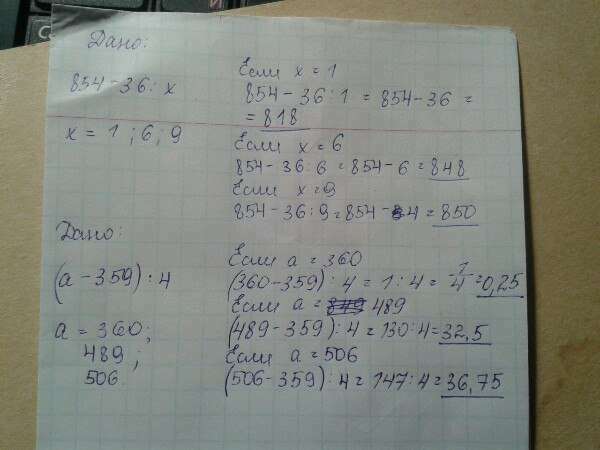 Дано:
854 - 36 : x
x = 1 ; 6 ; 9
Если x = 1
854 - 36 : 1 = 854 - 36 =
= 818
Если x = 6
854 - 36 : 6 = 854 - 6 = 848
Если x = 9
854 - 36 : 9 = 854 - 4 = 850
Дано:
(a - 359) : 4
a = 360;
489 ;
506.
Если a = 360
(360 - 359) : 4 = 1 : 4 = 1/4 = 0,25
Если a = 489
(489 - 359) : 4 = 130 : 4 = 32,5
Если a = 506
(506 - 359) : 4 = 147 : 4 = 36,75